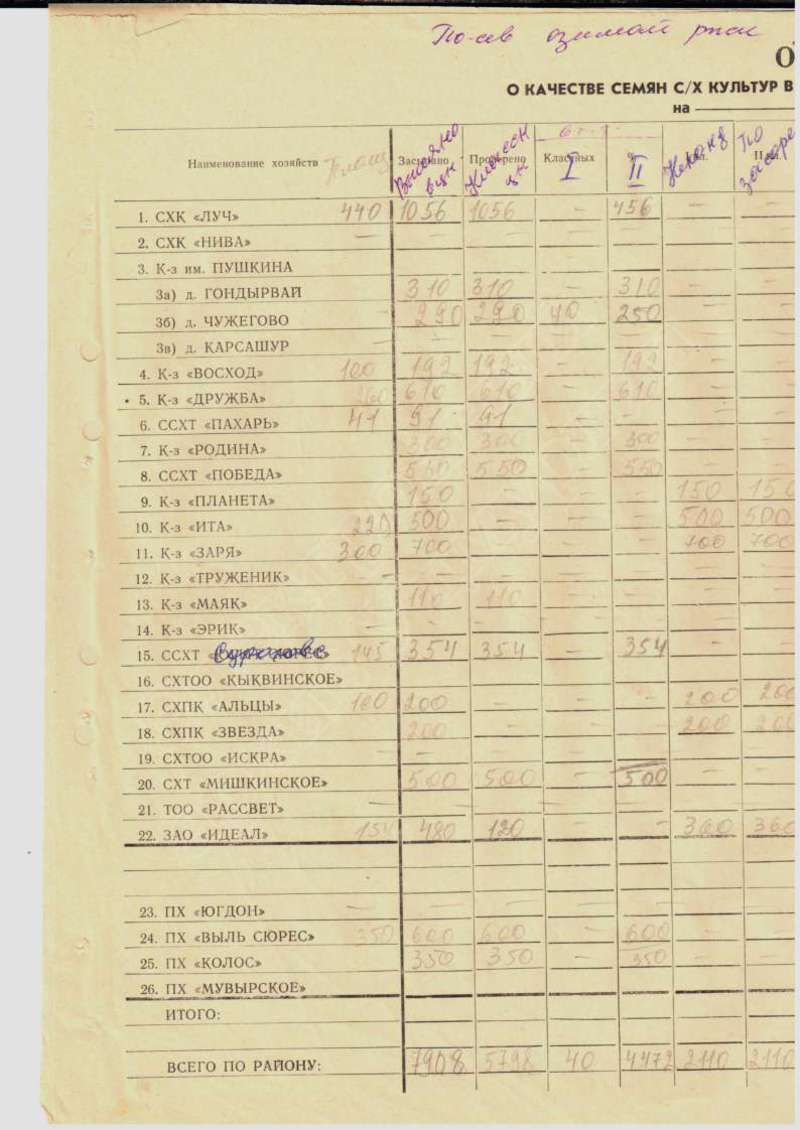 По-сев озимой ржи
О
О КАЧЕСТВЕ СЕМЯН С/Х КУЛЬТУР В
на
Наименование хозяйств Засыпано Проверено Классных I II Неконд По засоре
Высеяно в цн цн
1. СХК «ЛУЧ» 440 1056 1056 — 456 — —
2. СХК «НИВА» — — — — — — —
3. К-з им. ПУШКИНА
3а) д. ГОНДЫРВАЙ 310 310 — 310 — —
3б) д. ЧУЖЕГОВО 290 290 40 250 — —
3в) д. КАРСАШУР — — — — — —
4. К-з «ВОСХОД» 100 192 192 — 192 — —
5. К-з «ДРУЖБА» 260 610 610 — 610 — —
6. ССХТ «ПАХАРЬ» 41 91 41 — — — —
7. К-з «РОДИНА» 300 300 — 300 — —
8. ССХТ «ПОБЕДА» 550 550 — 550 — —
9. К-з «ПЛАНЕТА» 150 — — — 150 150
10. К-з «ИТА» 220 500 — — — 500 500
11. К-з «ЗАРЯ» 300 700 — — — 700 700
12. К-з «ТРУЖЕНИК» — — — — — — —
13. К-з «МАЯК» 110 110 — — — —
14. К-з «ЭРИК» — — — — — — —
15. ССХТ 145 354 354 — 354 — —
16. СХТОО «КЫКВИНСКОЕ»
17. СХПК «АЛЬЦЫ» 100 200 — — — 200 200
18. СХПК «ЗВЕЗДА» 200 — — — 200 200
19. СХТОО «ИСКРА» — — — — — — —
20. СХТ «МИШКИНСКОЕ» 500 500 — 500 — —
21. ТОО «РАССВЕТ» — — — — — — —
22. ЗАО «ИДЕАЛ» 154 480 120 — — 360 360
23. ПХ «ЮГДОН» — — — — — — —
24. ПХ «ВЫЛЬ СЮРЕС» 350 600 600 — 600 — —
25. ПХ «КОЛОС» 350 350 — 350 — —
26. ПХ «МУВЫРСКОЕ»
ИТОГО:
ВСЕГО ПО РАЙОНУ: 7908 5798 40 4472 2110 2110